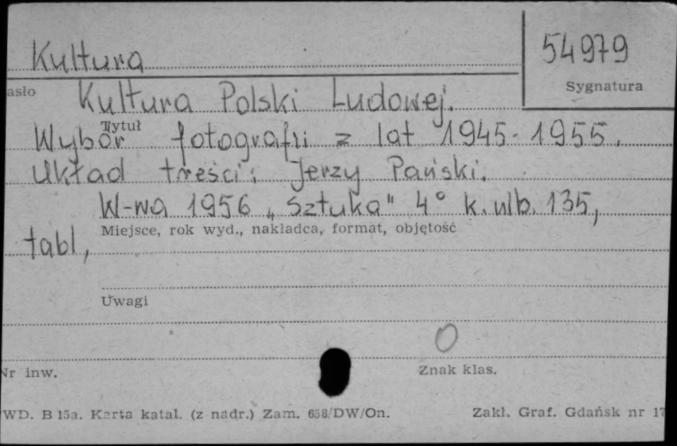 Kultura
54979
asło
Sygnatura
Kultura Polski Ludowej.
Tytuł
Wybór fotografii z lat 1945-1955.
Układ treści: Jerzy Pański.
W-wa 1956 „Sztuka" 4° k. nlb. 135,
Miejsce, rok wyd., nakładca, format, objętość
tabl,
Uwagi
0
Nr inw.
Znak klas.
WD. B 15a. Karta katal. (z nadr.) Zam. 658/DW/On.
Zakł. Graf. Gdańsk nr 17